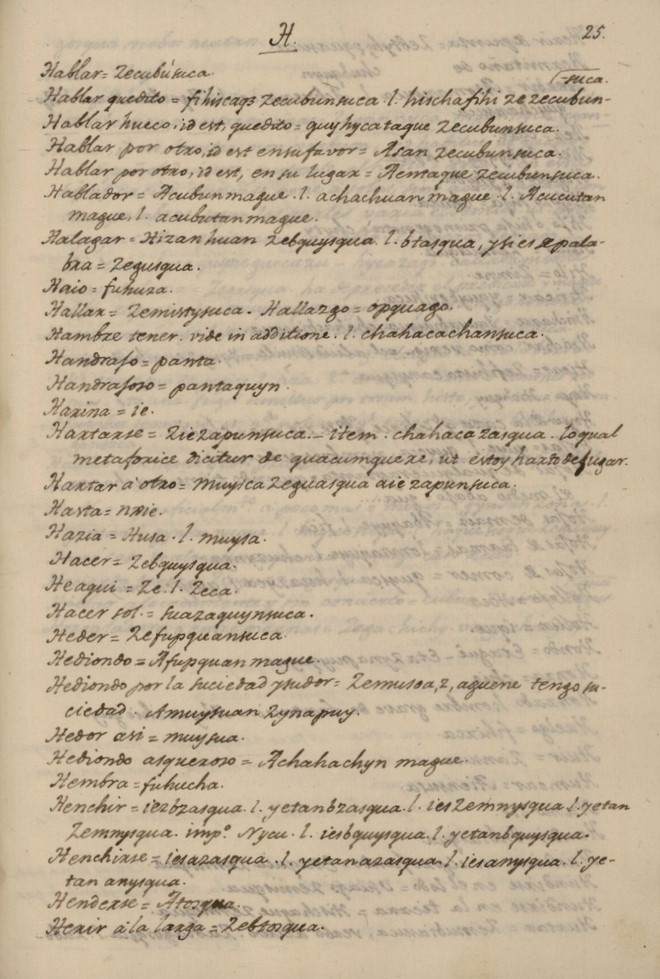 H. 25.
Hablar = Zecubúsuca.
Hablar quedito = fihiscaqz zecubunsuca l. hischafihi ze zecubun-
suca.
Hablar hueco, id est, quedito = quyhycataque zecubunsuca.
Hablar por otro, id est en su favor = Asan zecubunsuca.
Hablar por otro, id est, en su lugar = Aemtaque zecubunsuca.
Hablador = Acubunmague. l. achachuan mague. l. Acucutan
mague, l. acubutanmague.
Halagar = Hizan huan zebquysqua. l. btasqua, y si es de pala-
bra = zegusqua.
Haio = fuhuza.
Hallar = Zemistysuca. Hallazgo = opquago.
Hambre tener. vide in additione. l. chahacachansuca.
Handrajo = panta.
Handrajoso = pantaquyn.
Harina = ie.
Hartarse = Zie zapunsuca. - item. chahaca zasqua. lo qual
metaforice dicitur de quacumque re, ut estoy harto de jugar.
Hartar a otro = muysca zeguasqua aie zapunsuca.
Hasta = nxie.
Hazia = Husa. l. muysa.
Hacer = Zebquysqua.
He aqui = Ze. l. Zeca.
Hacer sol = suazaquynsuca.
Heder = Zefupquansuca.
Hediondo = Afupquan mague.
Hediondo por la suciedad y sudor = Zemusua, z, aquene tengo su-
ciedad. Amuysuan zynapuy.
Hedor asi = muysua.
Hediondo asqueroso = Achahachyn mague.
Hembra = fuhucha.
Henchir = iezbzasqua. l. yetanbzasqua. l. ieszemnysqua. l. yetan
zemnysqua. imp.º Nycu. l. iesbquysqua. l. yetanbquysqua.
Henchirse = iesazasqua. l. yetanazasqua. l. iesanysqua. l. ye-
tan anysqua.
Henderse = Atosqua.
Henir a la larga = Zebtosqua.